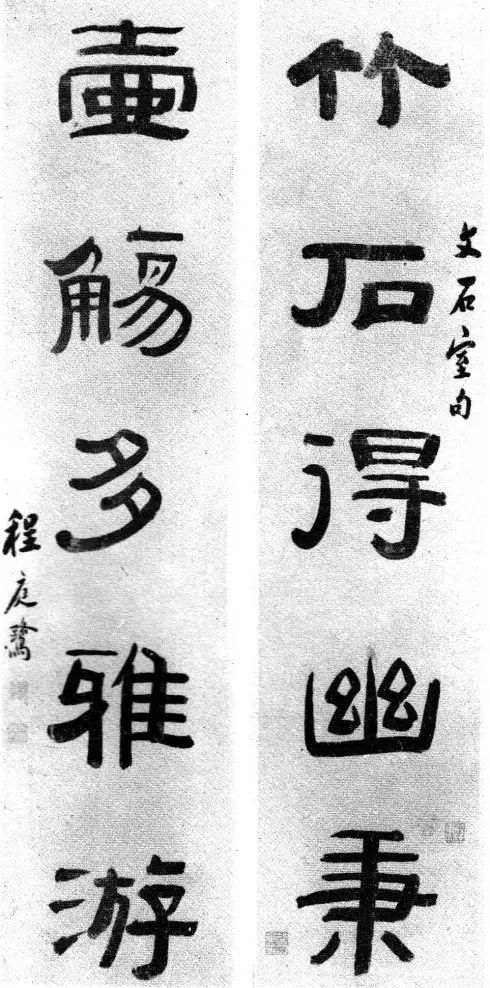 竹石得幽秉
文石室句
壺觴多雅游
程庭鷺